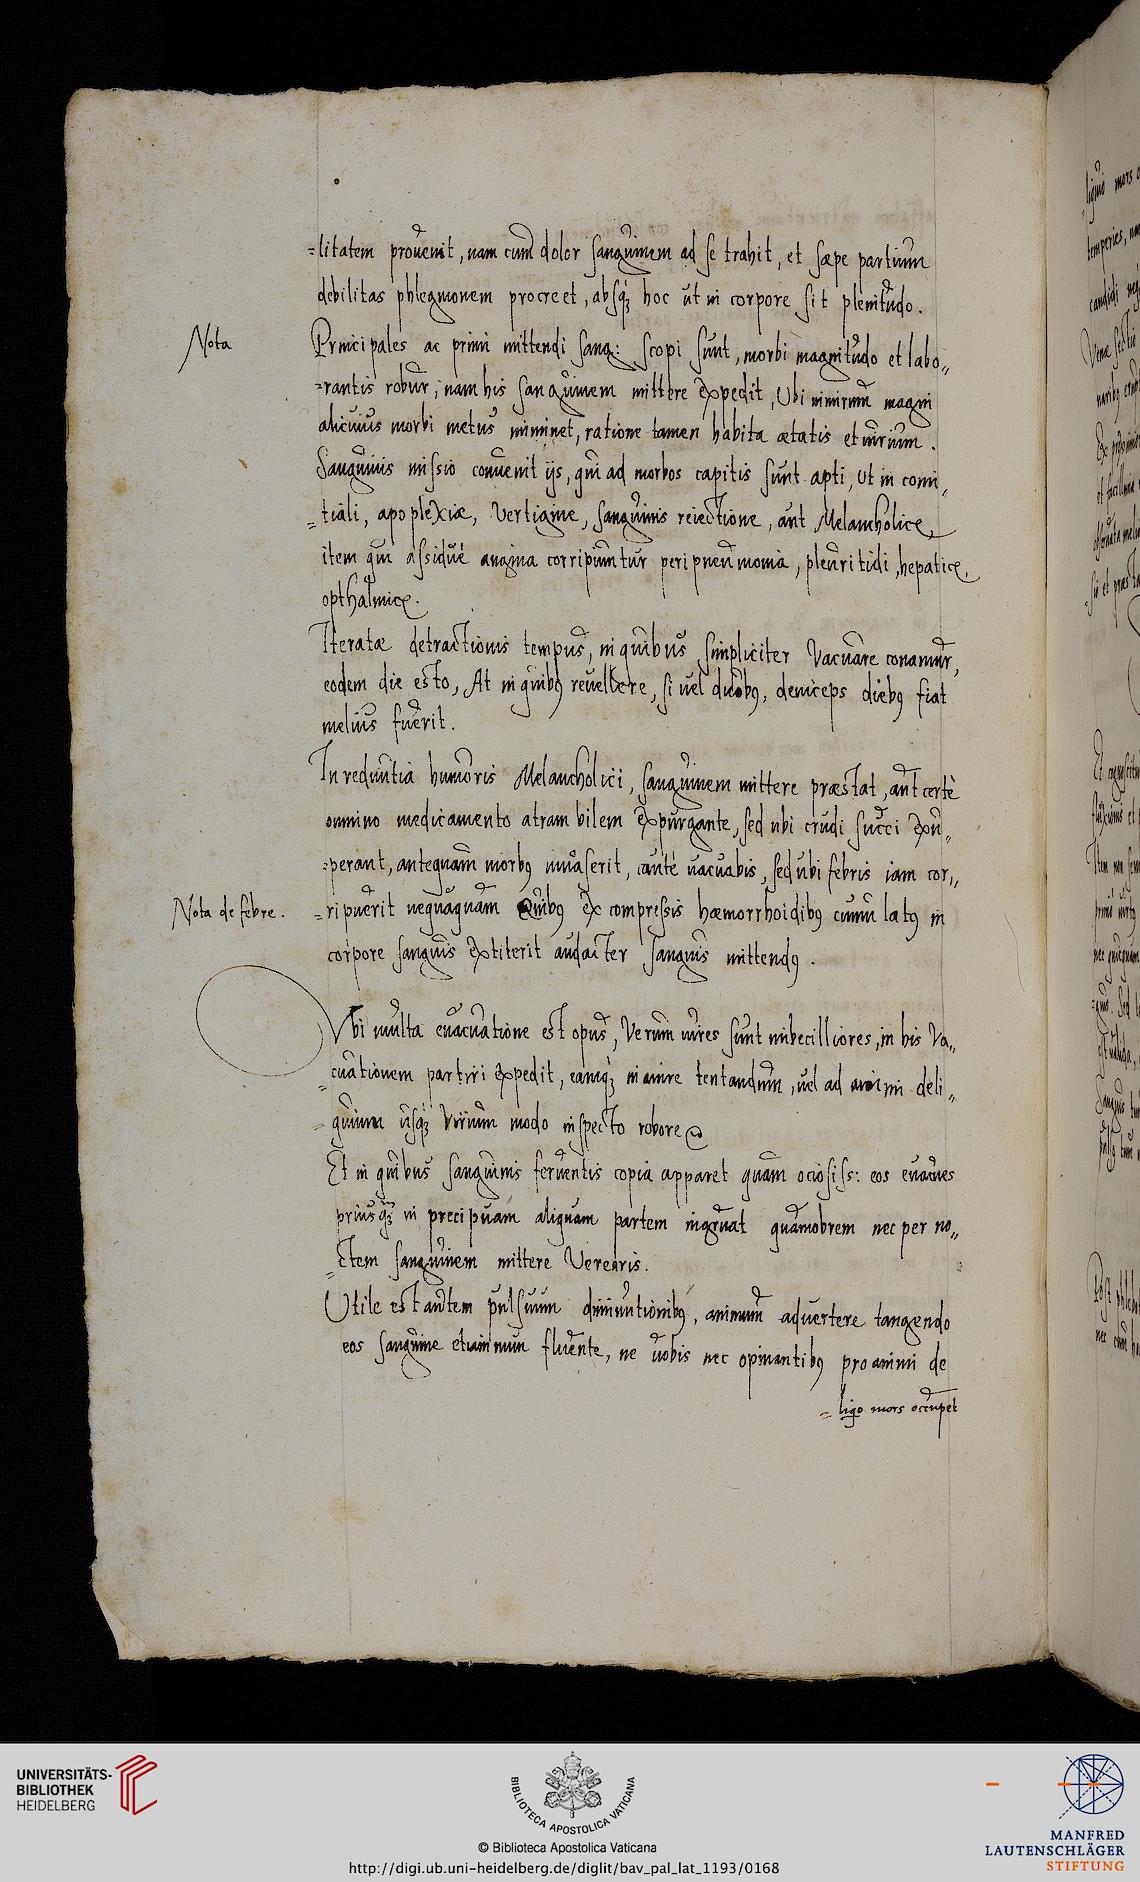 =litatem provenit, nam cum dolor sanguinem ad se trahit, et sæpe partium
debilitas phlegmonem procreet, absq́; hoc ut in corpore sit plenitudo.
Nota
Principales ac primi mittendi sang: scopi sunt, morbi magnitudo et labo,,
=rantis robur, nam his sanguinem mittere expedit, Ubi nimirum magni
alicuius morbi metus iminet, ratione tamen habita ætatis et virium.
Sanguinis missio convenit ijs, qui ad morbos capitis sunt apti, ut in comi,,
=tiali, apoplexiæ, Vertigine, sanguinis reiectione, aut Melancholicę,
item qui assiduè angina corripiuntur peripneumonia, pleuritidi, hepaticę,
opthalmicę.
Iteratæ detractionis tempus, in quibus simpliciter Vacuare conamur,
eodem die esto, At in quibꝫ revellere, si vel duobꝫ, deniceps diebꝫ fiat
melius fuerit.
In reduntia humoris Melancholici, sanguinem mittere præstat, aut certè
omnino medicamento atram bilem expurgante, sed ubi crudi succi exu,,
=perant, antequam morbꝫ invaserit, cautè vacuabis, sed ubi febris iam cor,,
Nota de febre.
=ripuerit nequaquam Quibꝫ ex compressis hæmorrhoidibꝫ cumulatꝫ in
corpore sanguis extiterit audacter sanguis mittendꝫ.
Vbi multa evacuatione est opus, Verum vires sunt imbecilliores, in his Va,,
=cuationem partiri expedit, eamq́; in aivre tentandum, vel ad animi deli,,
=quium usq́; Virium modo inspecto robore
Et in quibus sanguinis ferventis copia apparet quam ociosiss: eos evacues
priusq́; in precipuam aliquam partem ingruat quamobrem nec per no,,
=ctem sanguinem mittere Verearis.
Utile est autem pulsuum diminutionibꝫ, animum advertere tangendo
eos sanguine etiamnum fluente, ne vobis nec opinantibꝫ pro animi de
=liqio mors occupet
UNIVERSITÄTS-
BIBLIOTHEK
HEIDELBERG
BIBLIOTECA APOSTOLICA VATICANA
© Biblioteca Apostolica Vaticana
http://digi.ub.uni-heidelberg.de/diglit/bav_pal_lat_1193/0168
MANFRED
LAUTENSCHLÄGER
STIFTUNG